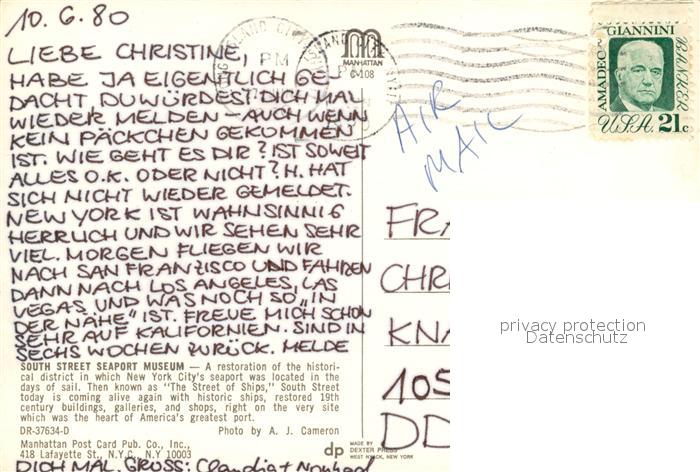 10.6.80
LIEBE CHRISTINE,
HABE JA EIGENTLICH GE-
DACHT DU WÜRDEST DICH MAL
WIEDER MELDEN – AUCH WENN
KEIN PÄCKCHEN GEKOMMEN
IST. WIE GEHT ES DIR? IST SOWEIT
ALLES O.K. ODER NICHT? H. HAT
SICH NICHT WIEDER GEMELDET.
NEW YORK IST WAHNSINNIG
HERRLICH UND WIR SEHEN SEHR
VIEL. MORGEN FLIEGEN WIR
NACH SAN FRANZISCO UND FAHREN
DANN NACH LOS ANGELES, LAS
VEGAS, UND WAS NOCH SO „IN
DER NÄHE" IST. FREUE MICH SCHON
SEHR AUF KALIFORNIEN. SIND IN
SECHS WOCHEN ZURÜCK. MELDE
SOUTH STREET SEAPORT MUSEUM — A restoration of the histori-
cal district in which New York City's seaport was located in the
days of sail. Then known as "The Street of Ships," South Street
today is coming alive again with historic ships, restored 19th
century buildings, galleries, and shops, right on the very site
which was the heart of America's greatest port.
DR-37634-D Photo by A. J. Cameron
Manhattan Post Card Pub. Co., Inc.,
418 Lafayette St., N.Y.C., N.Y 10003
DICH MAL. GRUSS: Claudia +
dp
MADE BY
DEXTER PRESS
WEST NYACK, NEW YORK
m
MANHATTAN
PM
AIR
MAIL
AMADEO P. GIANNINI
BANKER
U.S.A. 21c
FRA
CHRI
KNA
105
DD
privacy protection
Datenschutz